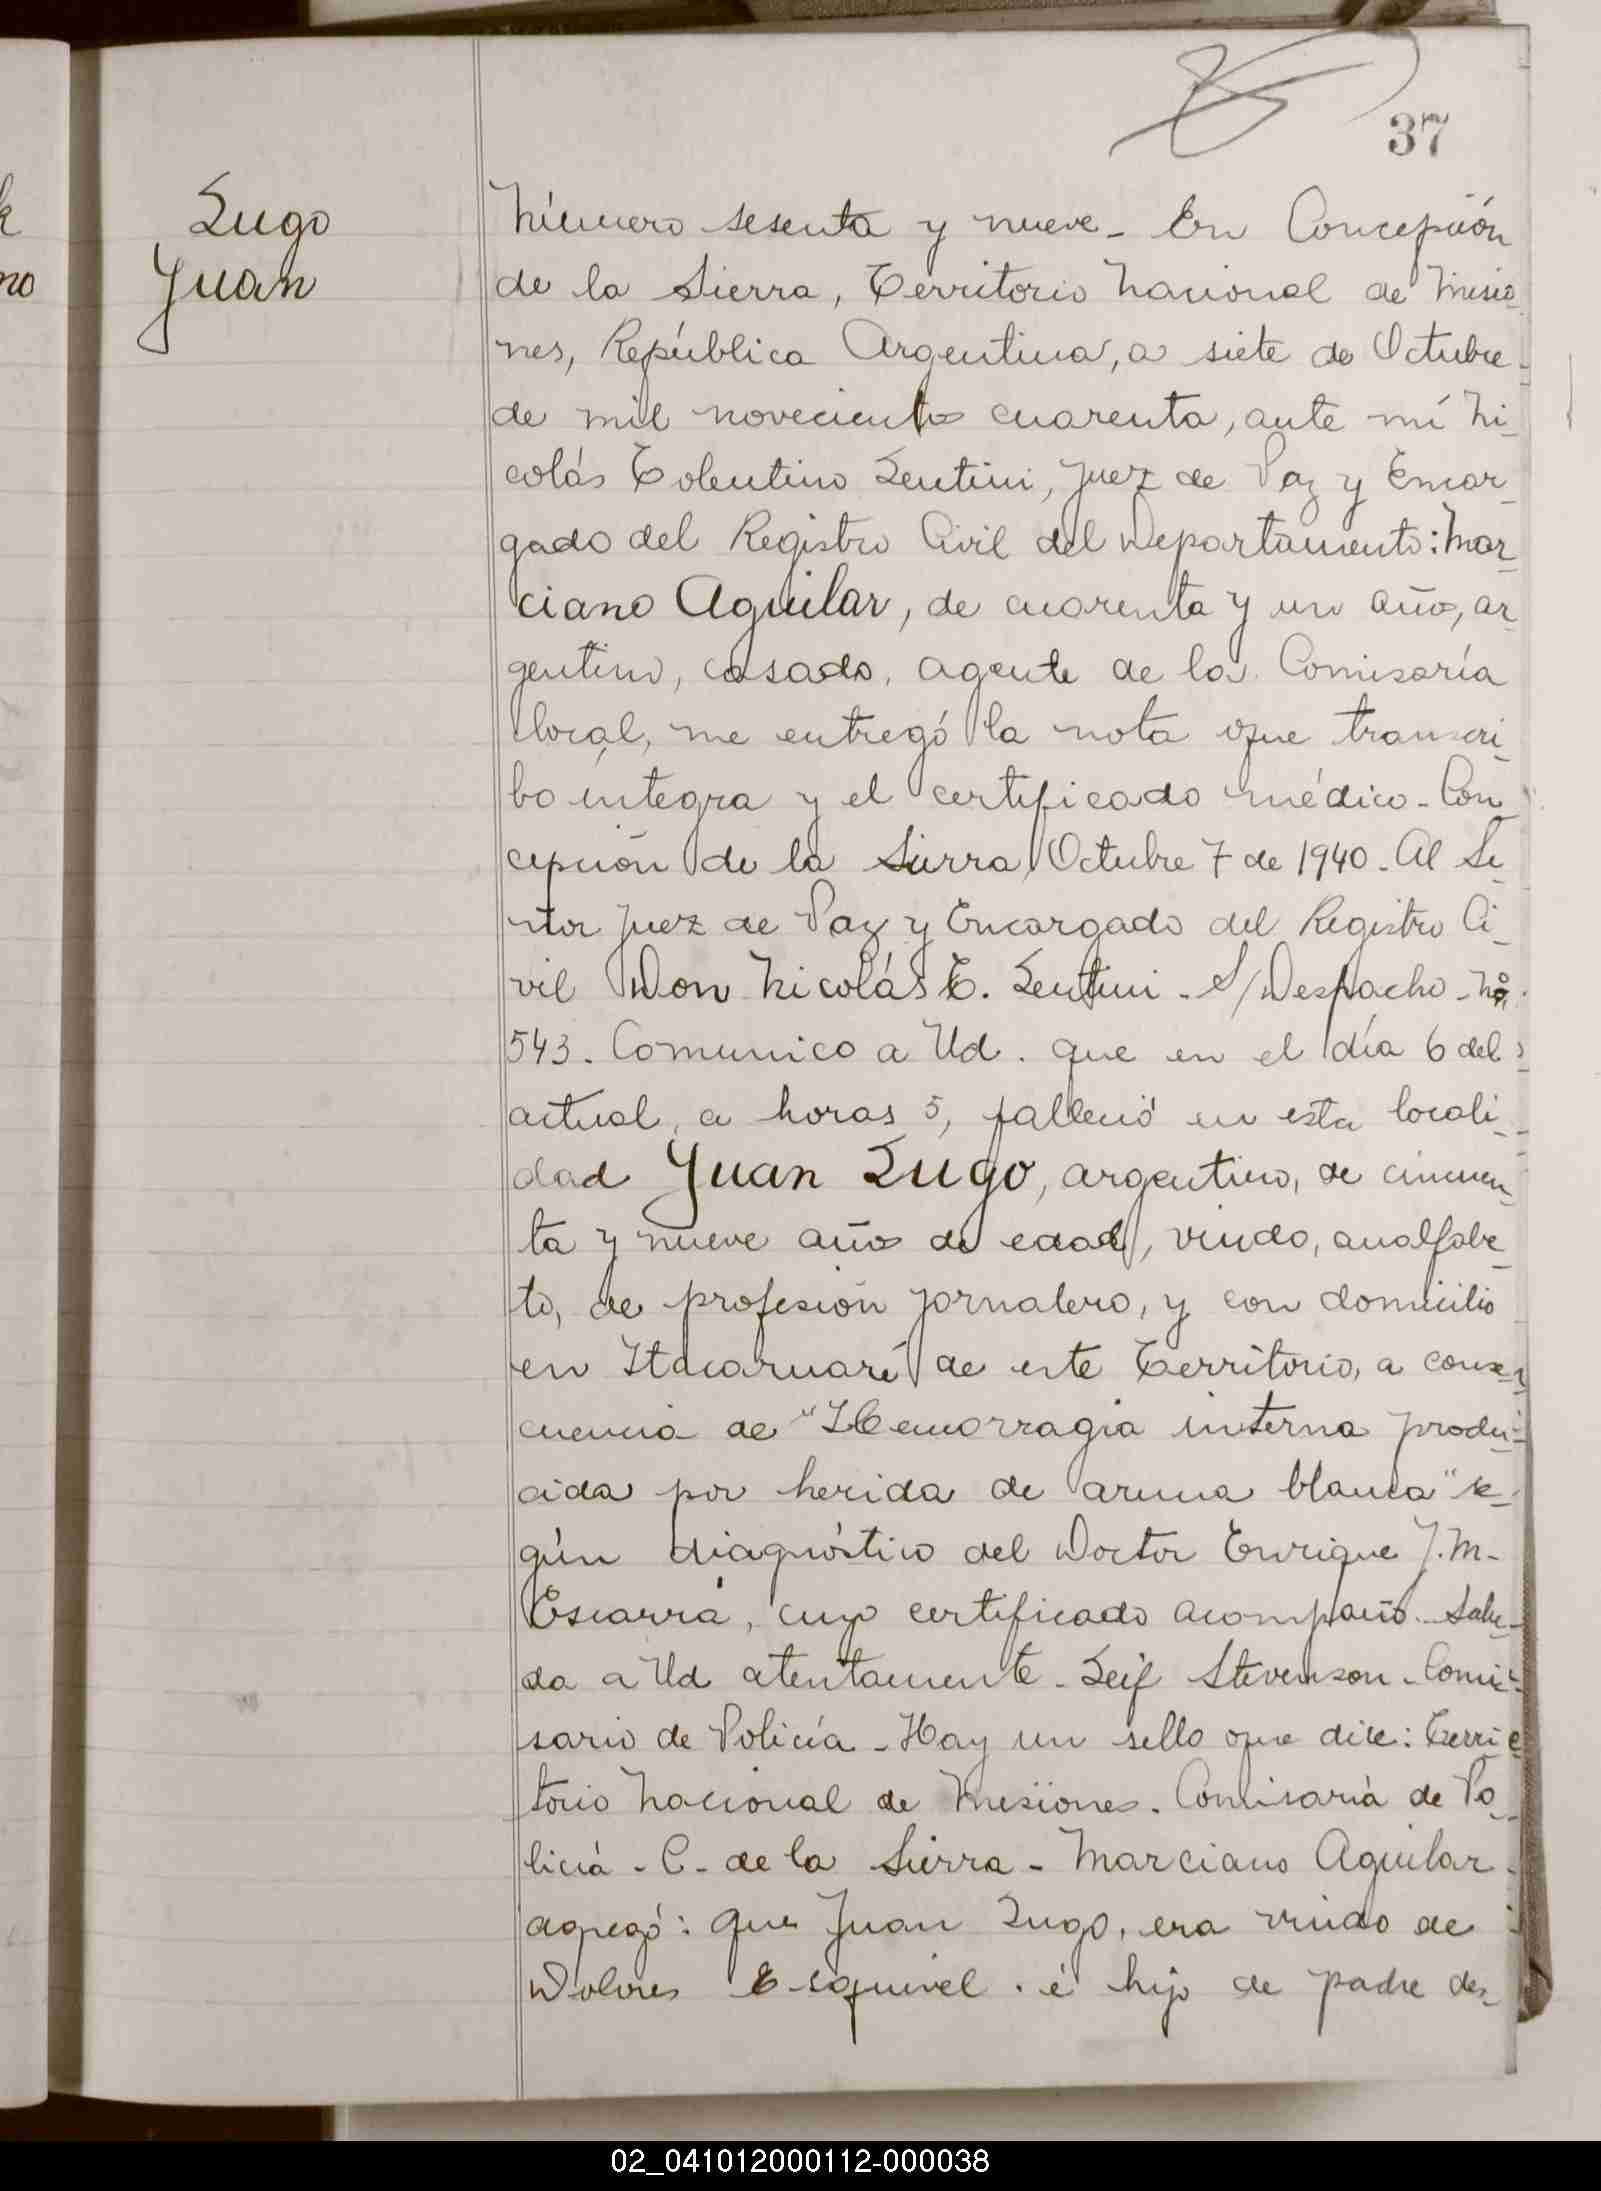 37
Lugo
Juan
Número sesenta y nueve - En Concepción
de la Sierra, Territorio Nacional de Misio-
nes, República Argentina, a siete de Octubre
de mil novecientos cuarenta, ante mí Ni-
colás Tolentino Lentini, Juez de Paz y Encar-
gado del Registro Civil del Departamento: Mar-
ciano Aguilar, de cuarenta y un años, ar-
gentino, casado, agente de la Comisaría
local, me entregó la nota que transcri-
bo íntegra y el certificado médico - Con
cepción de la Sierra, Octubre 7 de 1940 - Al Se-
ñor Juez de Paz y Encargado del Registro Ci-
vil Don Nicolás T. Lentini - S/Despacho - Nº
543 - Comunico a Ud. que en el día 6 del
actual, a horas 5, falleció en esta locali-
dad Juan Lugo, argentino, de cincuen-
ta y nueve años de edad, viudo, analfabe-
to, de profesión jornalero, y con domicilio
en Itacaruaré de este Territorio, a conse-
cuencia de "Hemorragia interna produ-
cida por herida de arma blanca" se-
gún diagnóstico del Doctor Enrique J. M.
Escarrá, cuyo certificado acompaño - Salu-
da a Ud atentamente - Leif Stevenson - Comi-
sario de Policía - Hay un sello que dice: Terri
torio Nacional de Misiones. Comisaría de Po-
licía - C. de la Sierra - Marciano Aguilar
agregó: que Juan Lugo, era viudo de
Dolores Esquivel. é hijo de padre des-
02_041012000112-000038